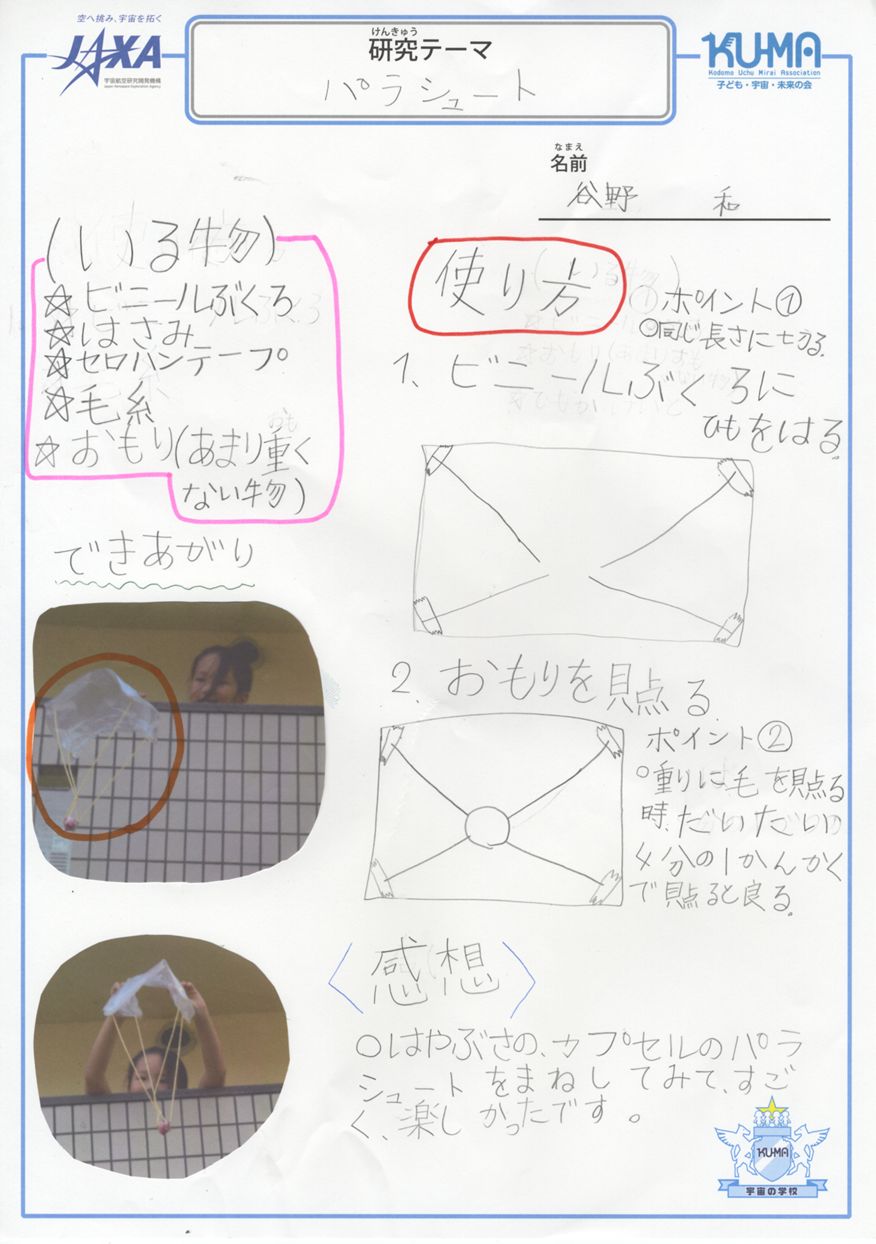 空へ挑み、宇宙を拓く
JAXA
宇宙航空研究開発機構
Japan Aerospace Exploration Agency
けんきゅう
研究テーマ
パラシュート
KU-MA
Kodomo Uchu Mirai Association
子ども・宇宙・未来の会
なまえ
名前
谷野 和
(いる物)
☆ビニールぶくろ
☆はさみ
☆セロハンテープ
☆毛糸
おも
☆おもり(あまり重く
ない物)
できあがり
使り方
ポイント①
○同じ長さに切る。
1、ビニールぶくろに
ひもをはる。
2、おもりを貼る。
ポイント②
○重りに毛を貼る
時、だいたい
4分の1かんかく
で貼ると良る。
〈感想〉
○はやぶさの、カプセルのパラ
シュートをまねしてみて、すご
く、楽しかったです。
KU-MA
宇宙の学校